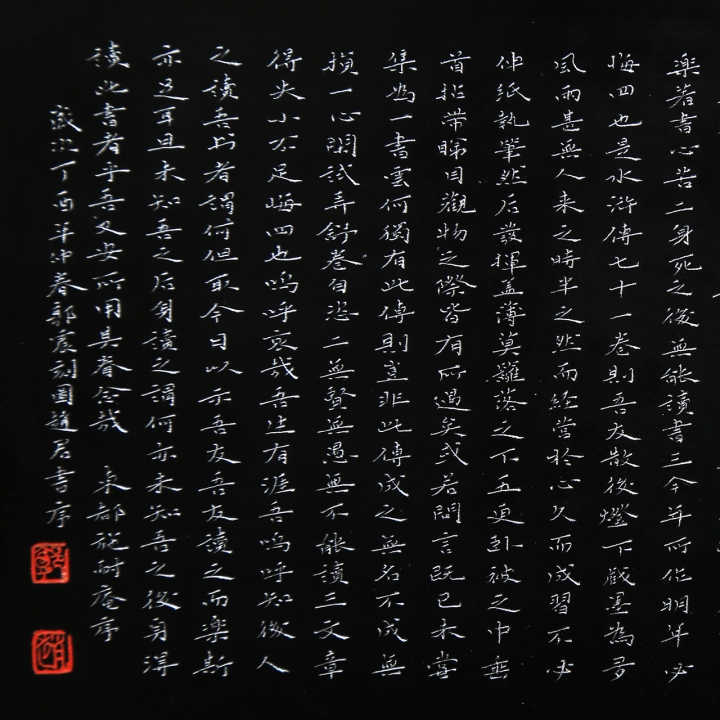 樂著書心苦二身死之後無能讀書三今年所作明年必
悔四也是水滸傳七十一卷則吾友散後燈下戲墨為多
風雨甚無人來之時半之然而經營於心久而成習不必
伸紙執筆然后發揮蓋薄莫籬落之下五更臥被之中垂
首拈帶睇目觀物之際皆有所遇矣或若問言既已未嘗
集為一書雲何獨有此傳則豈非此傳成之無名不成無
損一心閒試弄舒卷自恣二無賢無愚無不能讀三文章
得失小不足悔四也嗚呼哀哉吾生有涯吾嗚呼知後人
之讀吾書者謂何但取今日以示吾友吾友讀之而樂斯
亦足耳且未知吾之后身讀之謂何亦未知吾之後身得
讀此書者乎吾又安所用其眷念哉 東都施耐庵序
歲次丁酉年仲春郭震刻圖趙君書序